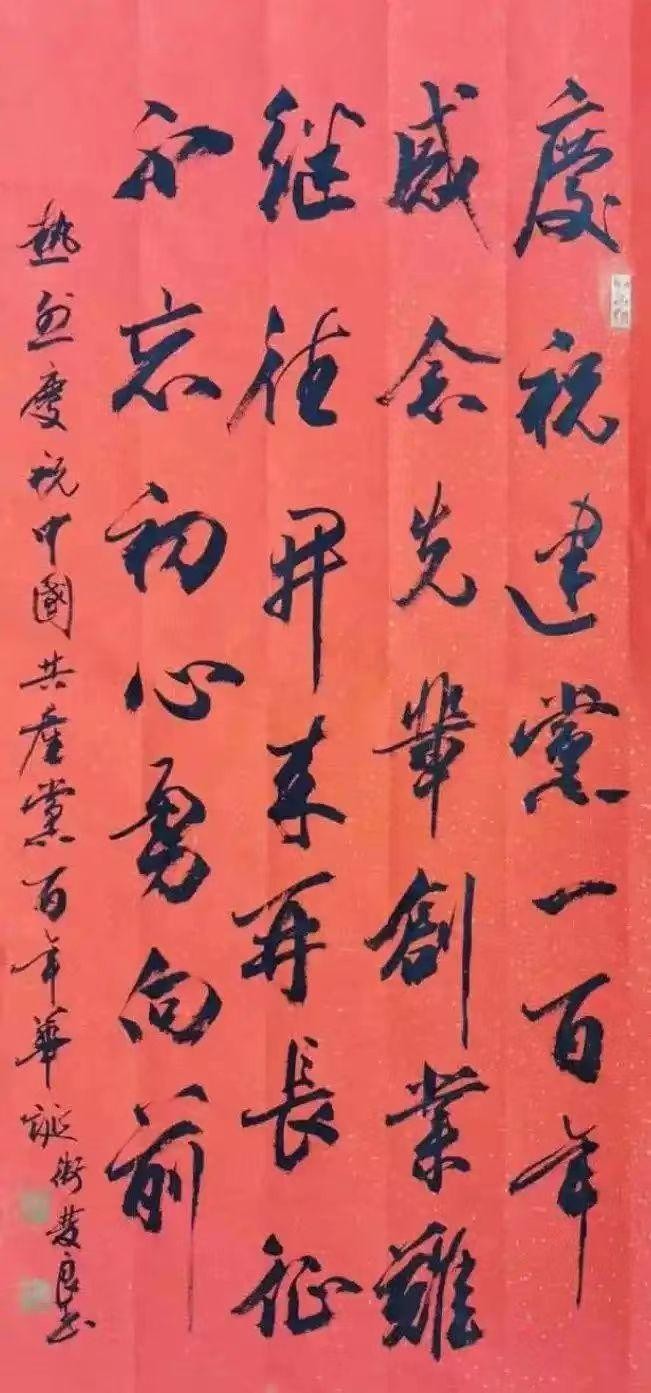 慶祝建黨一百年
感念先輩創業難
继往開来再長征
不忘初心勇向前
热烈慶祝中國共産黨百年華誕衛慶良书